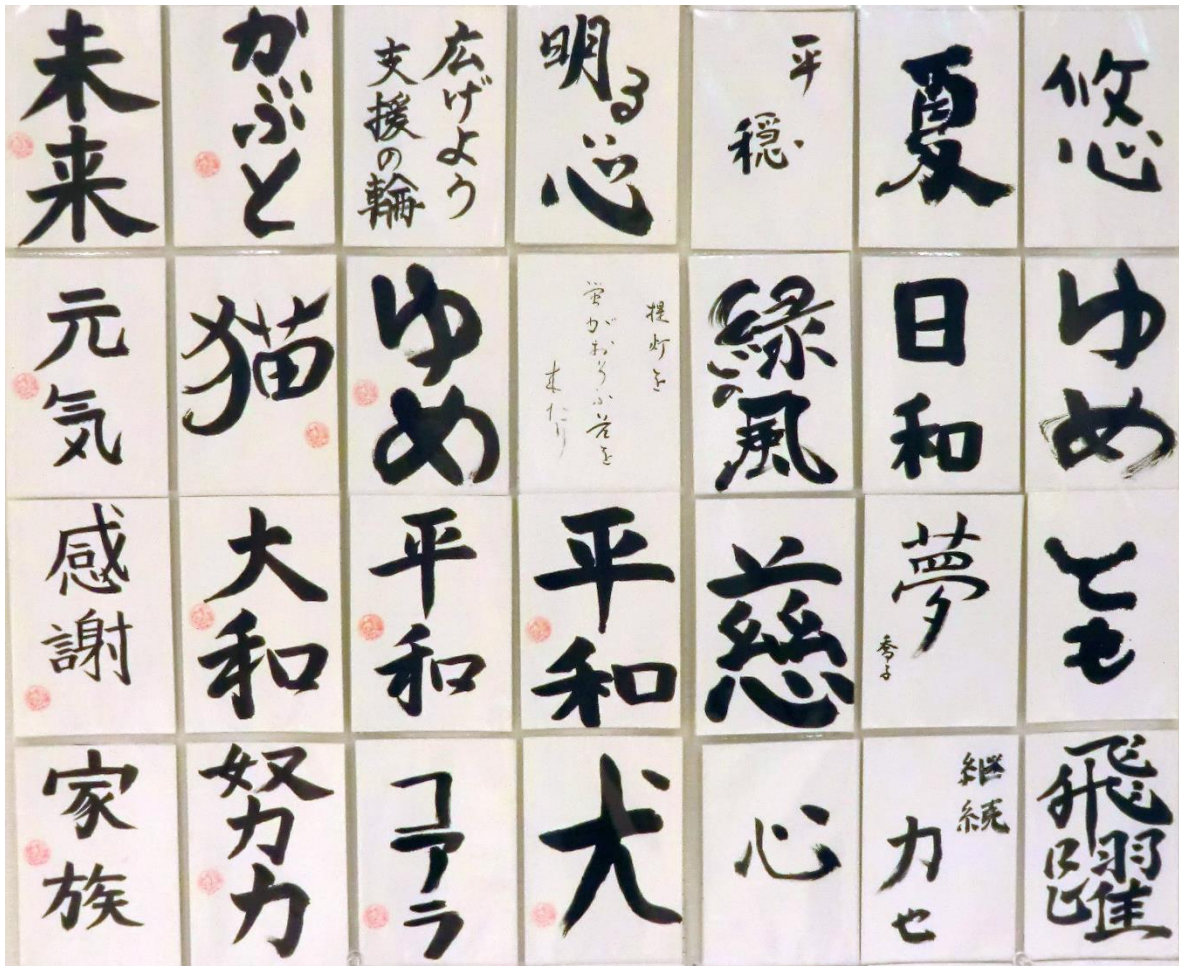 未来
かぶと
広げよう
支援の輪
明る心
平穏
夏
悠
元気
猫
ゆめ
提灯を
蛍がおそふ谷を
来たり
緑の風
日和
ゆめ
感謝
大和
平和
平和
慈
夢
とも
家族
努力
コアラ
犬
心
継続
力也
飛躍